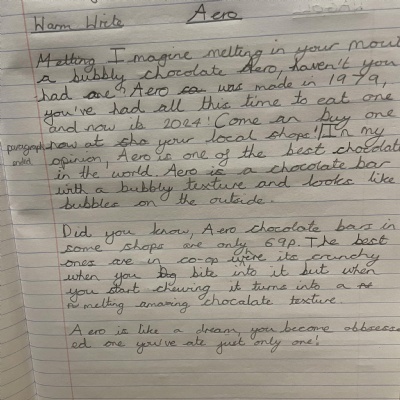 Aero
Warm Write
Melting Imagine melting in your mout
a bubbly chocolate Aero, haven't you
had one? Aero was made in 1979,
you've had all this time to eat one
and now its 2024! Come an buy one
now at sho your local shops! In my
paragraph
opinion, Aero is one of the best chocolat
in the world. Aero is a chocolate bar
with a bubbly texture and looks like
bubbles on the outside.
Did you know, Aero chocolate bars in
some shops are only 69p. The best
ones are in co-op were its crunchy
when you bite into it but when
you start chewing it turns into a
melting amazing chocolate texture.
Aero is like a dream, you become obbsess
ed one you've ate just only one!